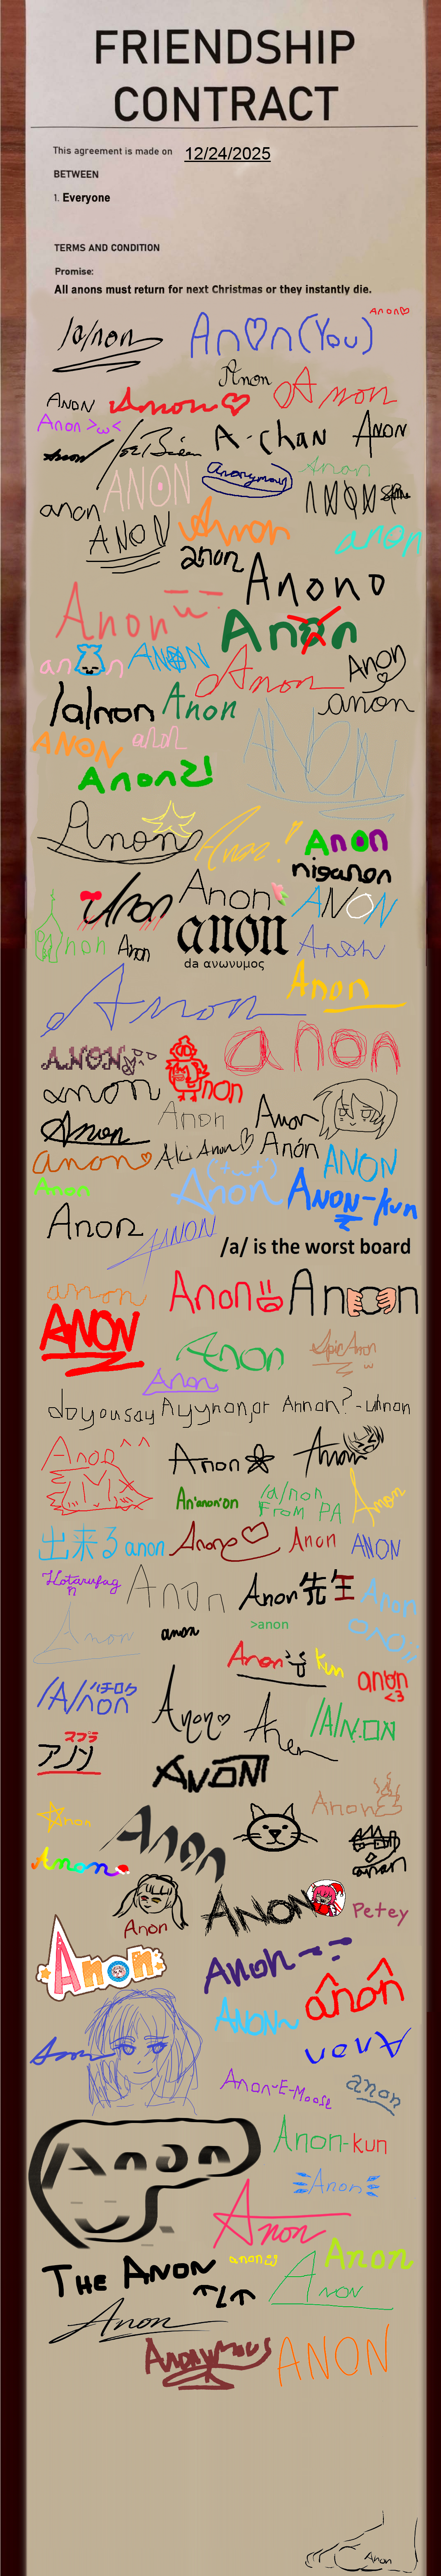 FRIENDSHIP
CONTRACT
This agreement is made on 12/24/2025
BETWEEN
1. Everyone
TERMS AND CONDITION
Promise:
All anons must return for next Christmas or they instantly die.
Anon♡
/a/non
An♡n(You)
Anon
Anon
Anon♡
Anon
Anon >ω<
Anon
Joe Biden
A-chan
Anon
ANON
Anonymous
Anon
anon
ANON
Anon
anon
anon
Anono
Anon
Anon
an n
ANON
Anon
Anon
♡
/a/non
Anon
anon
ANON
anon
ANON
Anonㄹ!
Anon
Anon!
Anon
niganon
Anon
Anon
ANON
anon
Anon
anon
Anon
da ανωνυμος
Anon
Anon
Anon
ANON
anon
non
anon
Anon
Anon
Anon
Aki Anon♡
Anón
anon♡
ANON
Anon
Anon
ANON-kun
Anon
ANON
/a/ is the worst board
anon
Anon
Anon
ANON
Anon
EpicAnon
ω
Anon
do you say Ayynon, or Annon? - Unnon
Anon ^^
Anon
Anon
An'anon'on
/a/non
From PA
Anon
出来る anon
Anon♡
Anon
ANON
Hotarufag
n
Anon
Anon先生
Anon
Anon
anon
>anon
anon
Anon
kun
anon
<3
/A/non
ハチロク
Anon♡
Anon
/A/N.ON
スプラ
アノン
ANON
Anon
Anon
Anon
Anon
anon
Anon
ANON
Petey
Anon
Anon
ANON~
ânôn
Anon
Anon
Anon-E-Moose
anon
Anon
Anon-kun
Anon
Anon
anon
Anon
THE ANON
Anon
Anon
Anonymous
ANON
Anon